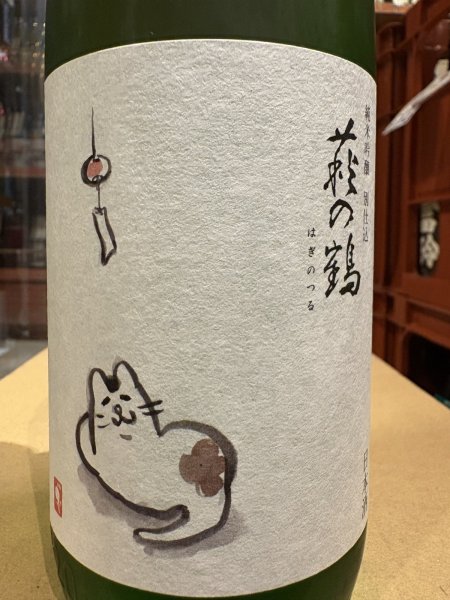 純米吟醸 別仕込
萩の鶴
はぎのつる
日本酒